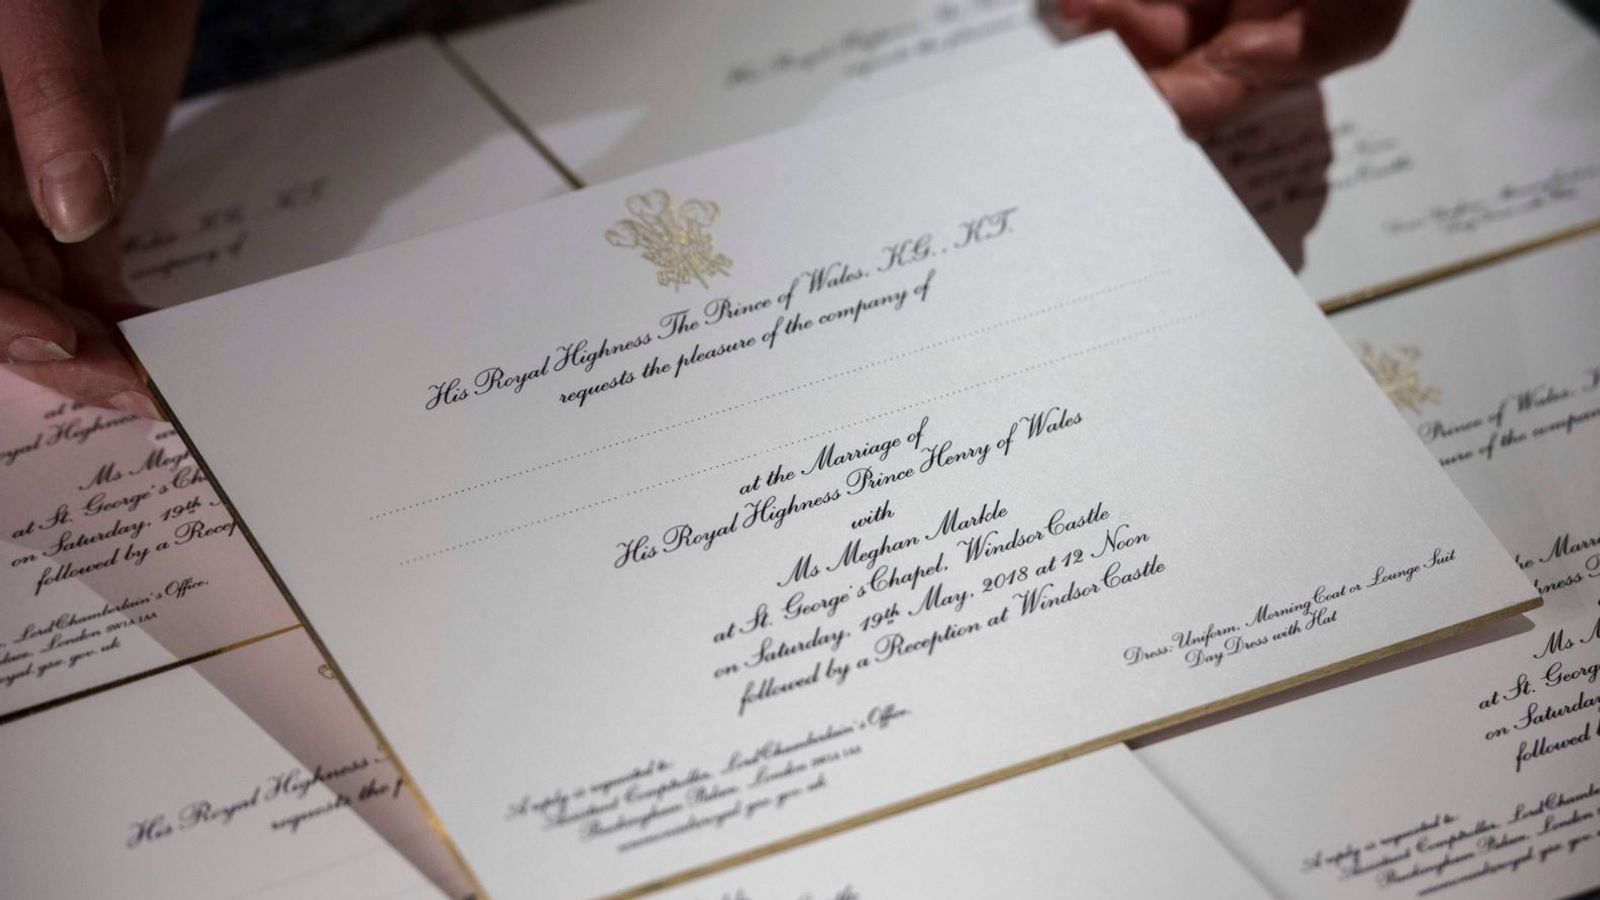 His Royal Highness The Prince of Wales, K.G., K.T.
requests the pleasure of the company of
at the Marriage of
His Royal Highness Prince Henry of Wales
with
Ms Meghan Markle
at St. George's Chapel, Windsor Castle
on Saturday, 19th May, 2018 at 12 Noon
followed by a Reception at Windsor Castle
Dress: Uniform, Morning Coat or Lounge Suit
Day Dress with Hat
A reply is requested to:
Assistant Comptroller, Lord Chamberlain's Office,
Buckingham Palace, London SW1A 1AA
at St. George's
on Saturday, 19th
followed by a
Lord Chamberlain's Office,
London SW1A 1AA
gov. uk
His Royal Highness
requests the
company of
Prince of Wales,
of the company
Ms
at St. George
on Saturday
followed
A reply is requested to:
Assistant Comptroller, Lord
Buckingham Palace, London